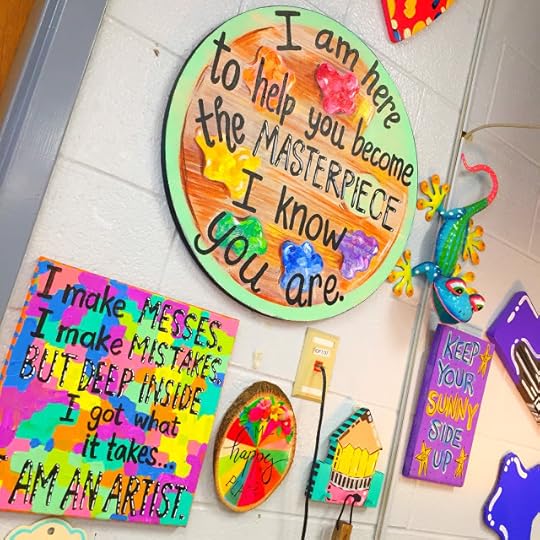 I am here
to help you become
the MASTERPIECE
I know
you are.
I make MESSES.
I make MISTAKES.
BUT DEEP INSIDE
I got what
it takes...
I AM AN ARTIST.
happy
KEEP
YOUR
SUNNY
SIDE
UP